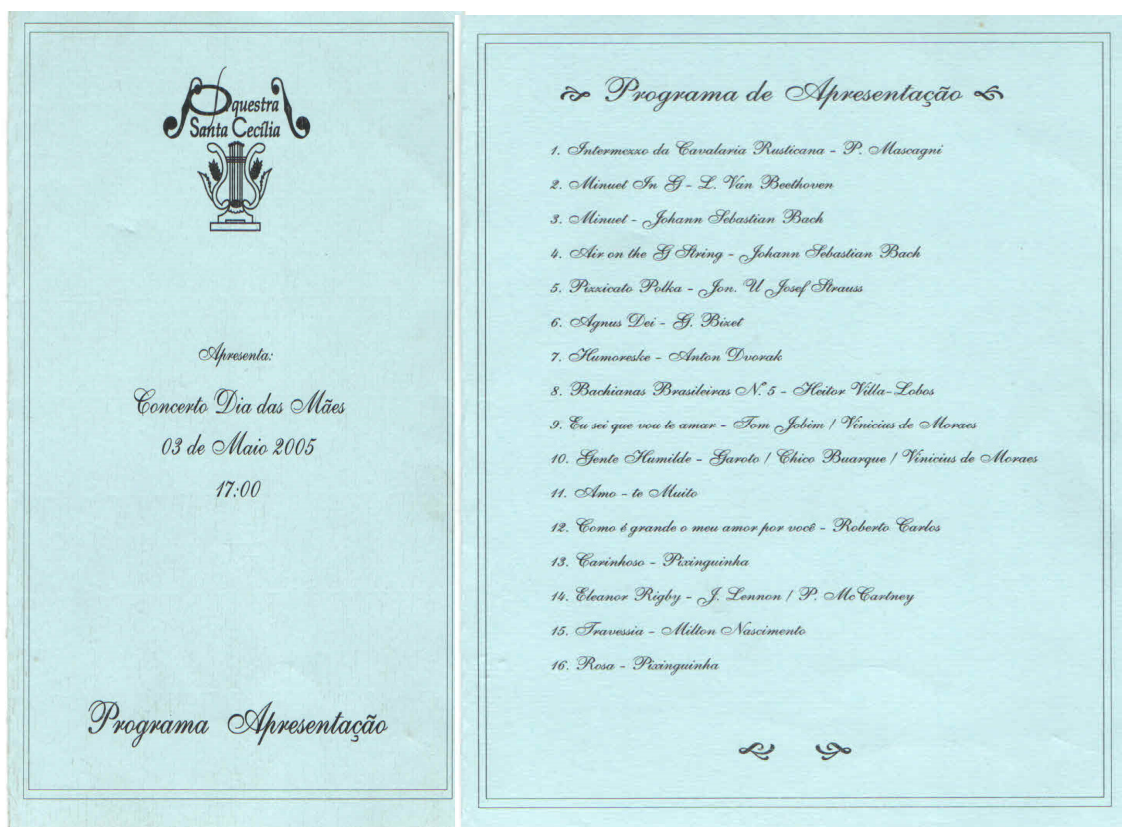 Orquestra
Santa Cecília
Apresenta:
Concerto Dia das Mães
03 de Maio 2005
17:00
Programa Apresentação
Programa de Apresentação
1. Intermezzo da Cavalaria Rusticana - P. Mascagni
2. Minuet In G - L. Van Beethoven
3. Minuet - Johann Sebastian Bach
4. Air on the G String - Johann Sebastian Bach
5. Pizzicato Polka - Jon. U Josef Strauss
6. Agnus Dei - G. Bizet
7. Humoreske - Anton Dvorak
8. Bachianas Brasileiras N.º 5 - Heitor Villa-Lobos
9. Eu sei que vou te amar - Tom Jobim / Vinicius de Moraes
10. Gente Humilde - Garoto / Chico Buarque / Vinicius de Moraes
11. Amo - te Muito
12. Como é grande o meu amor por você - Roberto Carlos
13. Carinhoso - Pixinguinha
14. Eleanor Rigby - J. Lennon / P. McCartney
15. Travessia - Milton Nascimento
16. Rosa - Pixinguinha